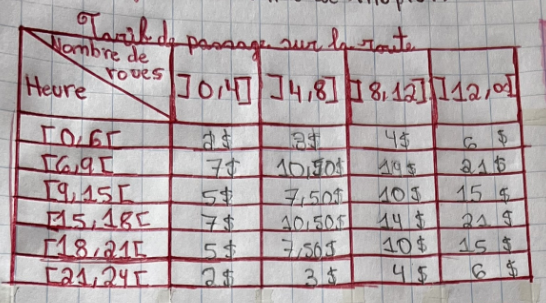 Tarif de passage sur la route
Nombre de roues
Heure ]0,4] ]4,8] ]8,12] ]12,∞[
[0,6[ 2$ 3$ 4$ 6 $
[6,9[ 7$ 10,50$ 14$ 21$
[9,15[ 5$ 7,50$ 10$ 15 $
[15,18[ 7$ 10,50$ 14 $ 21 $
[18,21[ 5$ 7,50$ 10$ 15 $
[21,24[ 2$ 3$ 4$ 6 $